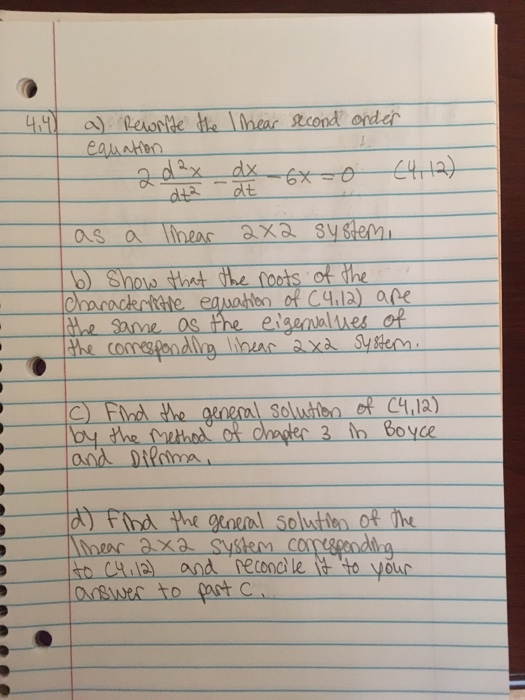 4.4) a) Rewrite the linear second order
equation
2 d²x/dt² - dx/dt - 6x = 0 (4.12)
as a linear 2x2 system.
b) Show that the roots of the
characteristic equation of (4.12) are
the same as the eigenvalues of
the corresponding linear 2x2 system.
c) Find the general solution of (4.12)
by the method of chapter 3 in Boyce
and DiPrima.
d) Find the general solution of the
linear 2x2 system corresponding
to (4.12) and reconcile it to your
answer to part C.